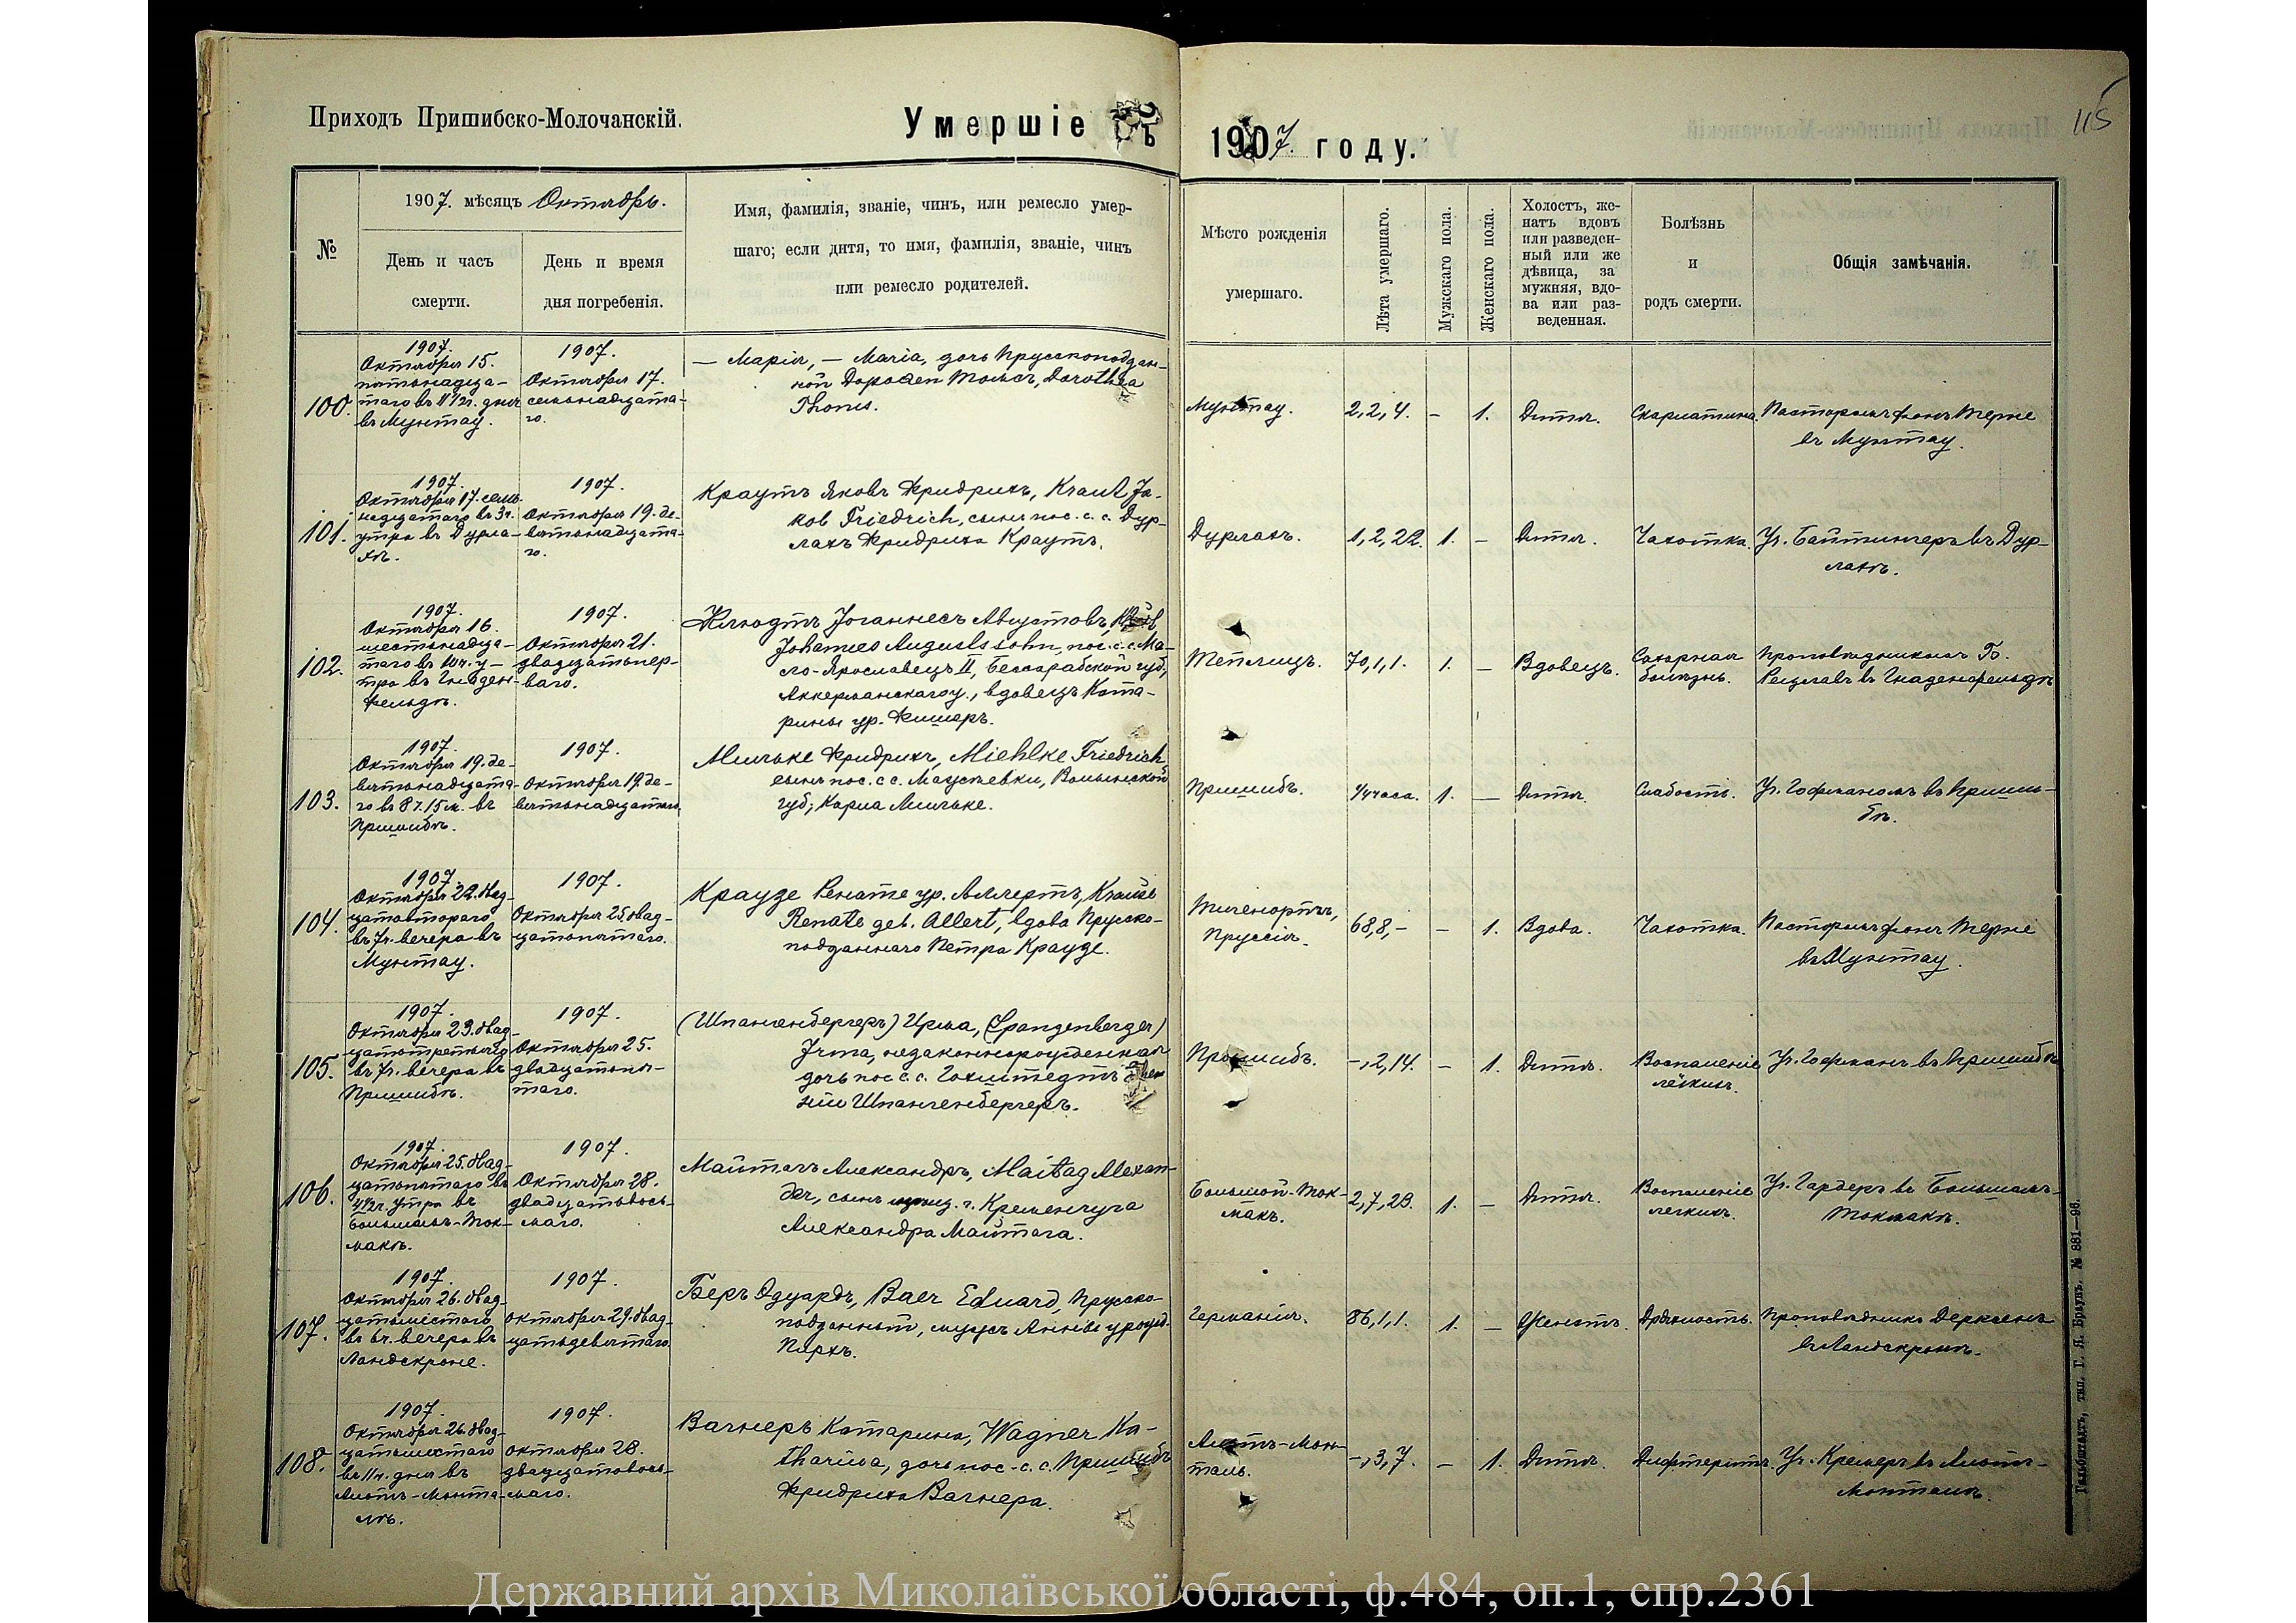 Приходъ Пришибско-Молочанскій.
Умершіе въ
1907. году.
115
№
1907. мѣсяцъ Октябрь.
День и часъ
смерти.
День и время
дня погребенія.
Имя, фамилія, званіе, чинъ, или ремесло умер-
шаго; если дитя, то имя, фамилія, званіе, чинъ
или ремесло родителей.
Мѣсто рожденія
умершаго.
Лѣта умершаго.
Мужскаго пола.
Женскаго пола.
Холостъ, же-
натъ вдовъ
или разведен-
ный или же
дѣвица, за
мужняя, вдо-
ва или раз-
веденная.
Болѣзнь
и
родъ смерти.
Общія замѣчанія.
100.
1907.
Октября 15.
пятьнадца-
таго въ 11 1/2 ч. дня
въ Мунтау.
1907.
Октября 17.
семьнадцата-
го.
— Марія, — Maria, дочь Прусскоподдан-
ной Доротеи Томсъ, Dorothea
Thoms.
Мунтау.
2,2,4.
-
1.
Дитя.
Скарлатина.
Пасторомъ фонъ Терне
въ Мунтау.
101.
1907.
Октября 17. семь-
надцатаго въ 3 ч.
утра въ Дурла-
хѣ.
1907.
Октября 19. де-
вятьнадцата-
го.
Краутъ Яковъ Фридрихъ, Kraut Ja-
kob Friedrich, сынъ пос. с. с. Дур-
лахъ Фридриха Краутъ.
Дурлахъ.
1,2,22.
1.
-
Дитя.
Чахотка.
Уч. Байтингеръ въ Дур-
лахѣ.
102.
1907.
Октября 16.
шестьнадца-
таго въ 10 ч. у-
тра въ Гнаден-
фельдѣ.
1907.
Октября 21.
двадцатьпер-
ваго.
Клюдтъ Іоганнесъ Августовъ,
Johannes Augustssohn, пос. с. с. Ма-
ло-Ярославецъ II, Бессарабской губ.,
Аккерманскаго у., вдовецъ Ката-
рины ур. Фишеръ.
Теплицъ.
70,1,1.
1.
-
Вдовецъ.
Сахарная
болѣзнь.
Проповѣдникомъ Г.
въ Гнаденфельдѣ
103.
1907.
Октября 19. де-
вятьнадцата-
го въ 8 ч. 15 м. въ
Пришибѣ.
1907.
Октября 19. де-
вятьнадцатаго.
Мильке Фридрихъ, Miehlke Friedrich
сынъ пос. с. с. Волынской
губ; Карла Мильке.
Пришибъ.
1/4 часа.
1.
—
Дитя.
Слабость.
Уч. Гофманомъ въ Приши-
бѣ.
104.
1907.
Октября 22. двад-
цатьвтораго
въ 7 ч. вечера въ
Мунтау.
1907.
Октября 25. двад-
цатьпятаго.
Краузе Ренате ур. Аллертъ, Krause
Renate geb. Allert, вдова Прусско-
подданнаго Петра Краузе.
Тигенортъ,
Пруссія.
68,8,-
-
1.
Вдова.
Чахотка.
Пасторомъ фонъ Терне
въ Мунтау.
105.
1907.
Октября 23. двад-
цатьтретьяго
въ 7 ч. вечера въ
Пришибѣ.
1907.
Октября 25.
двадцатьпя-
таго.
(Шпангенбергеръ) Ирма, (Spangenberger)
Irma, незаконнорожденная
дочь пос. с. с. Гохштедтъ
ніи Шпангенбергеръ.
Пришибъ.
-,2,14.
-
1.
Дитя.
Воспаленіе
лёгкихъ.
Уч. Гофманъ въ Пришибѣ
106.
1907.
Октября 25. двад-
цатьпятаго въ
4 1/2 ч. утра въ
Большомъ-Ток-
макѣ.
1907.
Октября 28.
двадцатьвось-
маго.
Майтагъ Александръ, Maitag Alexan-
der, сынъ г. Кременчуга
Александра Майтага.
Большой-Ток-
макъ.
2,7,23.
1.
-
Дитя.
Воспаленіе
легкихъ.
Уч. Гардеръ въ Большомъ-
Токмакѣ.
107.
1907.
Октября 26. двад-
цатьшестаго
въ 6 ч. вечера въ
Ландскроне.
1907.
Октября 29. двад-
цатьдевятаго.
Беръ Эдуардъ, Baer Eduard, Прусско-
подданный, мужъ Анны урожд.
Пирхъ.
Германія.
86,1,1.
1.
-
Женатъ.
Дряхлость.
Проповѣдникъ Дерксенъ
въ Ландскронѣ.
108.
1907.
Октября 26. двад-
цатьшестаго
въ 11 ч. дня въ
Альтъ-Монта-
лѣ.
1907.
Октября 28.
двадцатьвось-
маго.
Вагнеръ Катарина, Wagner Ka-
tharina, дочь пос. с. с. Пришибъ
Фридриха Вагнера.
Альтъ-Мон-
таль.
-,3,7.
-
1.
Дитя.
Дифтеритъ.
Уч. Кремеръ въ Альтъ-
Монталѣ.
Гальбштадтъ, тип. Г. Я. Браунъ. № 881—96.
Державний архів Миколаївської області, ф.484, оп.1, спр.2361